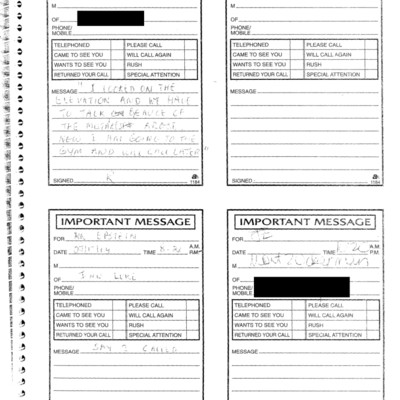 M
OF
PHONE/
MOBILE
TELEPHONED PLEASE CALL
CAME TO SEE YOU WILL CALL AGAIN
WANTS TO SEE YOU RUSH
RETURNED YOUR CALL SPECIAL ATTENTION
MESSAGE " I ON THE
ELEVATION AND
TO TALK BECAUSE OF
THE
NOW I AM GOING TO THE
GYM AND WILL CALL LATER"
SIGNED K
1184
M
OF
PHONE/
MOBILE
TELEPHONED PLEASE CALL
CAME TO SEE YOU WILL CALL AGAIN
WANTS TO SEE YOU RUSH
RETURNED YOUR CALL SPECIAL ATTENTION
MESSAGE
SIGNED
1184
IMPORTANT MESSAGE
FOR MR EPSTEIN
DATE TIME A.M.
P.M.
M
OF
PHONE/
MOBILE
TELEPHONED PLEASE CALL
CAME TO SEE YOU WILL CALL AGAIN
WANTS TO SEE YOU RUSH
RETURNED YOUR CALL SPECIAL ATTENTION
MESSAGE
IMPORTANT MESSAGE
FOR JE
DATE TIME A.M.
P.M.
M
OF
PHONE/
MOBILE
TELEPHONED PLEASE CALL
CAME TO SEE YOU WILL CALL AGAIN
WANTS TO SEE YOU RUSH
RETURNED YOUR CALL SPECIAL ATTENTION
MESSAGE